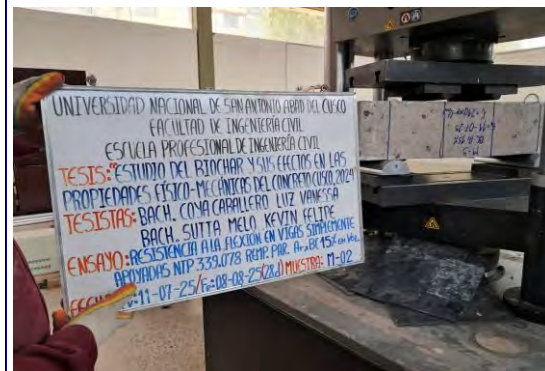 UNIVERSIDAD NACIONAL DE SAN ANTONIO ABAD DEL CUSCO
FACULTAD DE INGENIERÍA CIVIL
ESCUELA PROFESIONAL DE INGENIERÍA CIVIL
TESIS: "ESTUDIO DEL BIOCHAR Y SUS EFECTOS EN LAS
PROPIEDADES FÍSICO-MECÁNICAS DEL CONCRETO CUSCO, 2024
TESISTAS: BACH. COYA CABALLERO LUZ VANESSA
BACH. SUTTA MELO KEVIN FELIPE
ENSAYO: RESISTENCIA A LA FLEXIÓN EN VIGAS SIMPLEMENTE
APOYADAS NTP 339.078 REMP. PAR. Ar, BC 15% en Vol.
11-07-25/ 08-08-25 (28d) MUESTRA: M-02